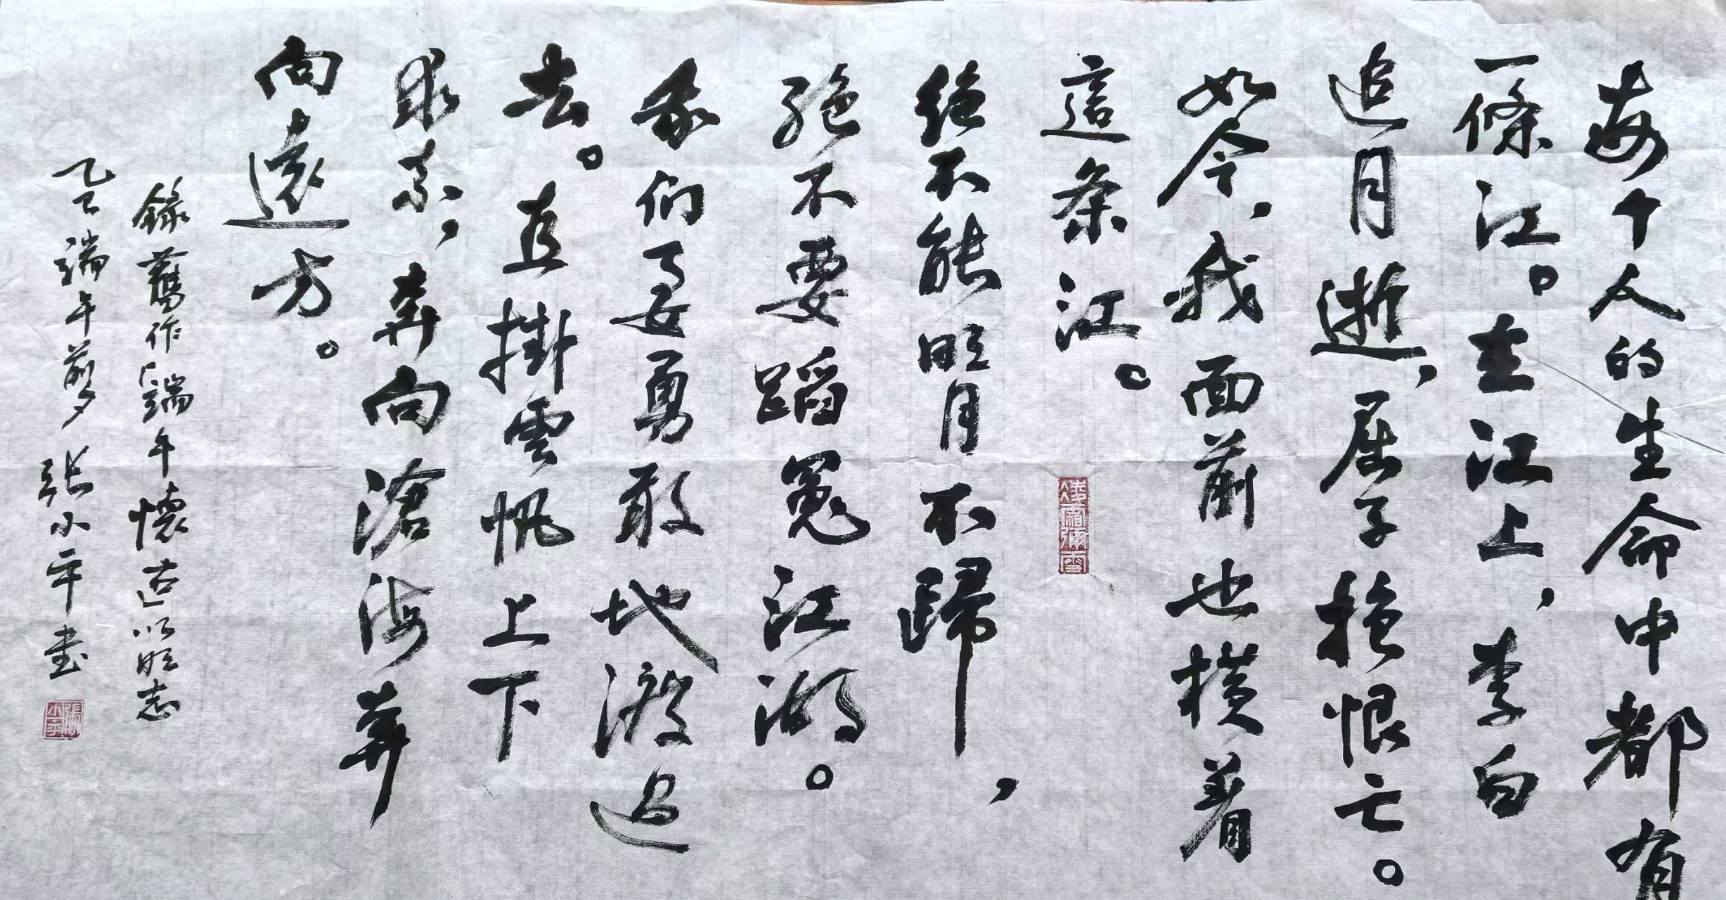 每个人的生命中都有
一條江。在江上，李白
追月逝，屈子抱恨亡。
如今，我面前也横着
這条江。
绝不能明月不歸，
绝不要蹈冤江湖。
我们要勇敢地渡过
去。直掛雲帆上下
求索，奔向滄海奔
向遠方。
錄舊作「端午懷古」以明志
乙巳端午前夕 张小平书